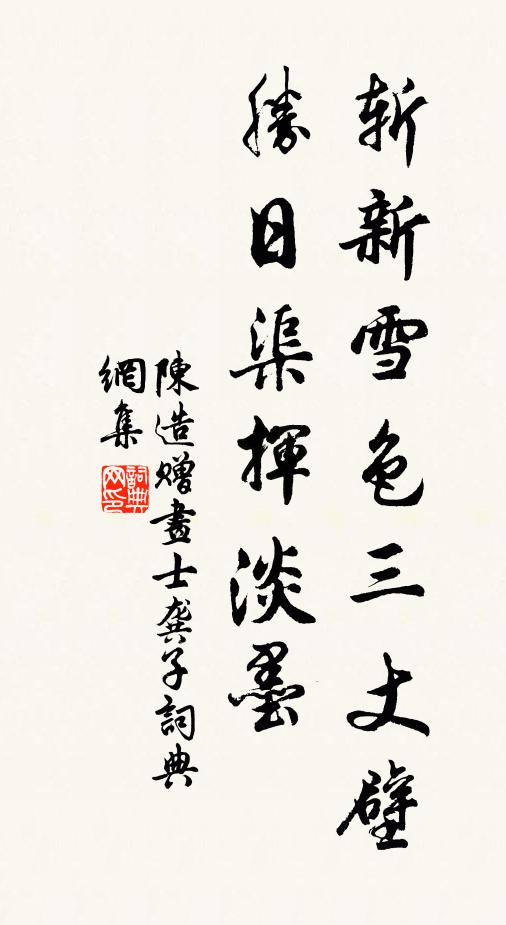 斬新雪色三丈壁
勝日渠揮淡墨
陳造贈畫士龔子詞典
網集
詞典网印